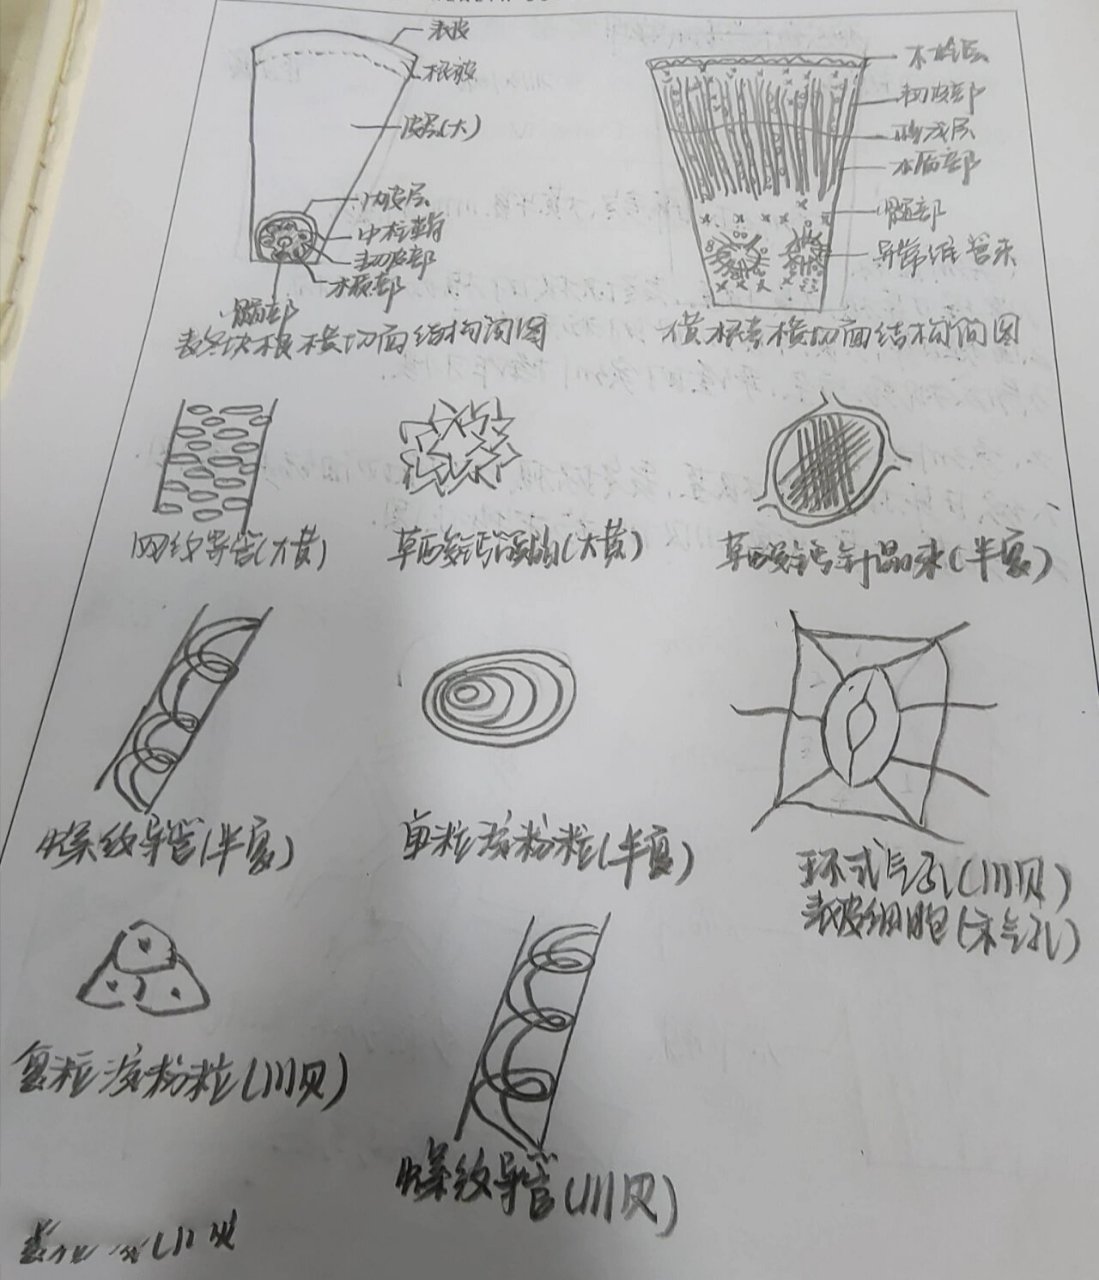 表皮
根被
皮层(大)
内皮层
中柱鞘
韧皮部
木质部
髓部
麦冬块根横切面结构简图
木栓层
韧皮部
形成层
木质部
髓部
异常维管束
横切面结构简图
网纹导管(大黄)
草酸钙簇晶(大黄)
草酸钙针晶束(半夏)
螺纹导管(半夏)
单粒淀粉粒(半夏)
环式气孔(川贝)
表皮细胞(示气孔)
复粒淀粉粒(川贝)
螺纹导管(川贝)